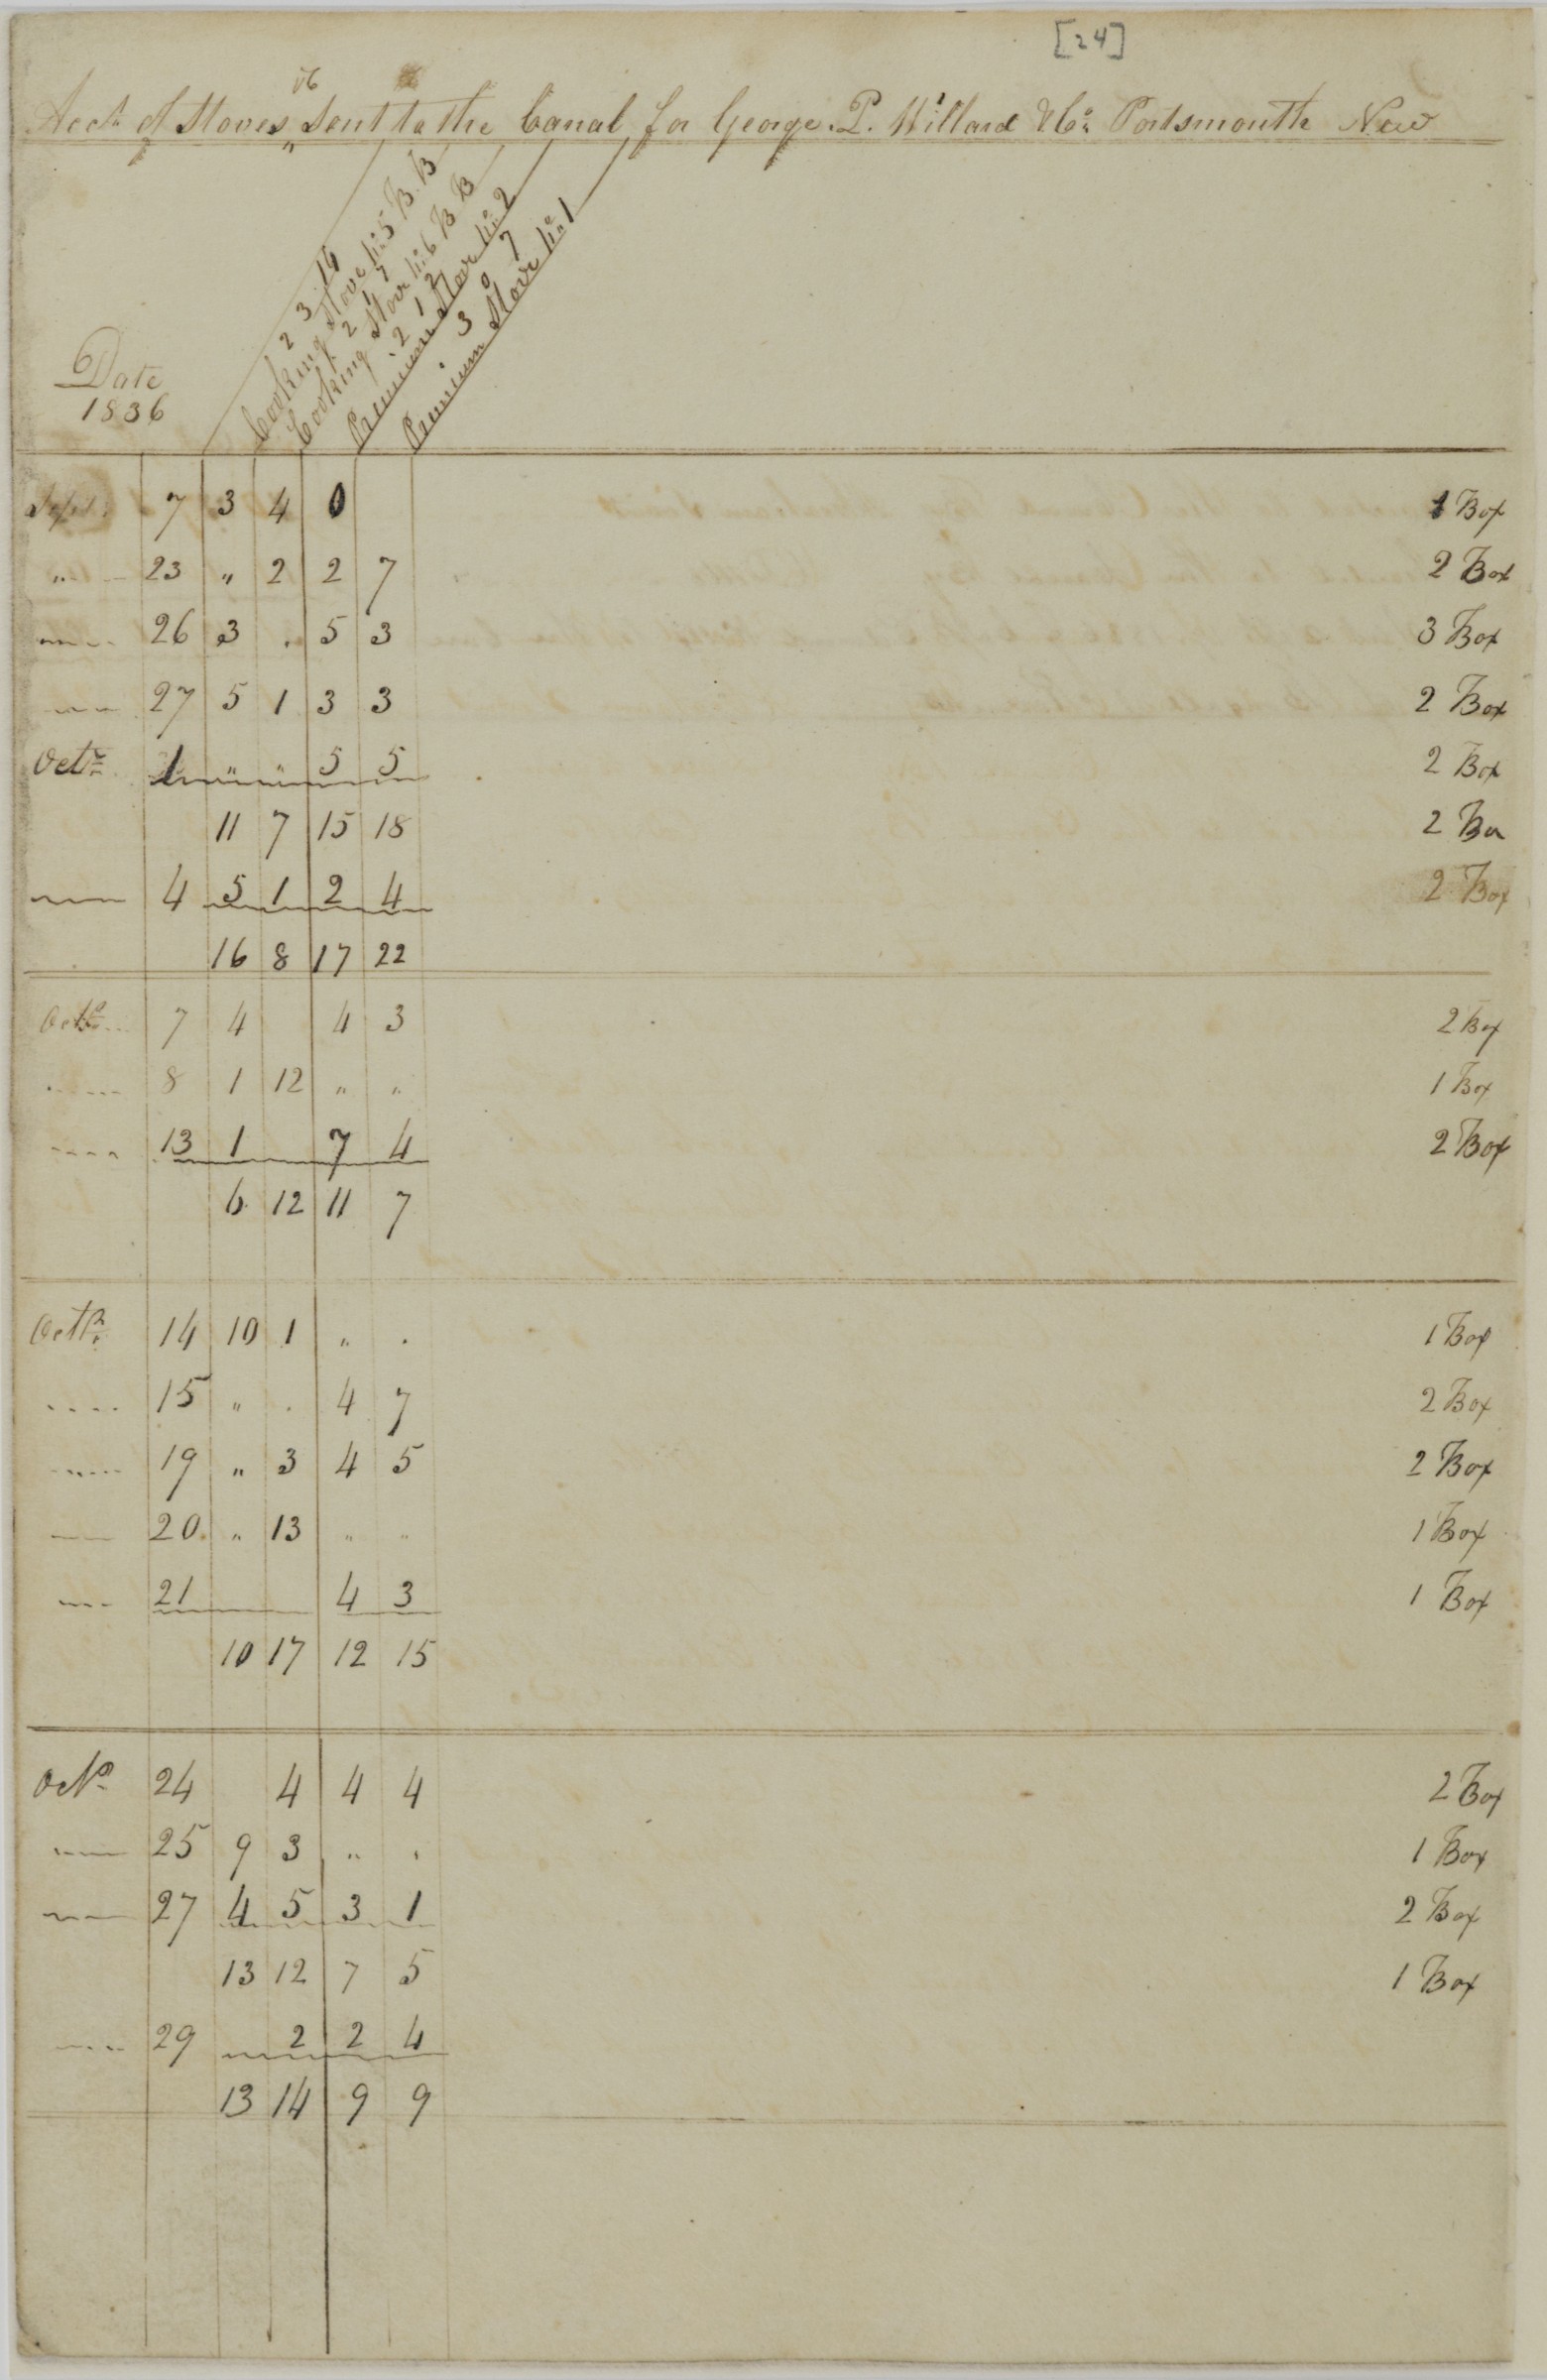 [24]
Acct. of Stoves sent to the Canal for George. P. Willard & Co. Portsmouth New
2 3 14
Cooking Stove No. 5 B. B
2 1 7
Cooking Stove No. 6 B B
2 1 2
Premium Stove No. 2
3 0 7
Premium Stove No. 1
Date
1836
Sept. 7 3 4 0 1 Box
" 23 " 2 2 7 2 Box
26 3 . 5 3 3 Box
27 5 1 3 3 2 Box
Octr. 1 " " 5 5 2 Box
11 7 15 18 2 Bo
4 5 1 2 4 2 Box
16 8 17 22
Octr. 7 4 4 3 2 Box
8 1 12 " " 1 Box
13 1 7 4 2 Box
6 12 11 7
Octr. 14 10 1 " . 1 Box
15 " . 4 7 2 Box
19 " 3 4 5 2 Box
20 " 13 " " 1 Box
21 4 3 1 Box
10 17 12 15
Octr. 24 4 4 4 2 Box
25 9 3 " . 1 Box
27 4 5 3 1 2 Box
13 12 7 5 1 Box
29 2 2 4
13 14 9 9